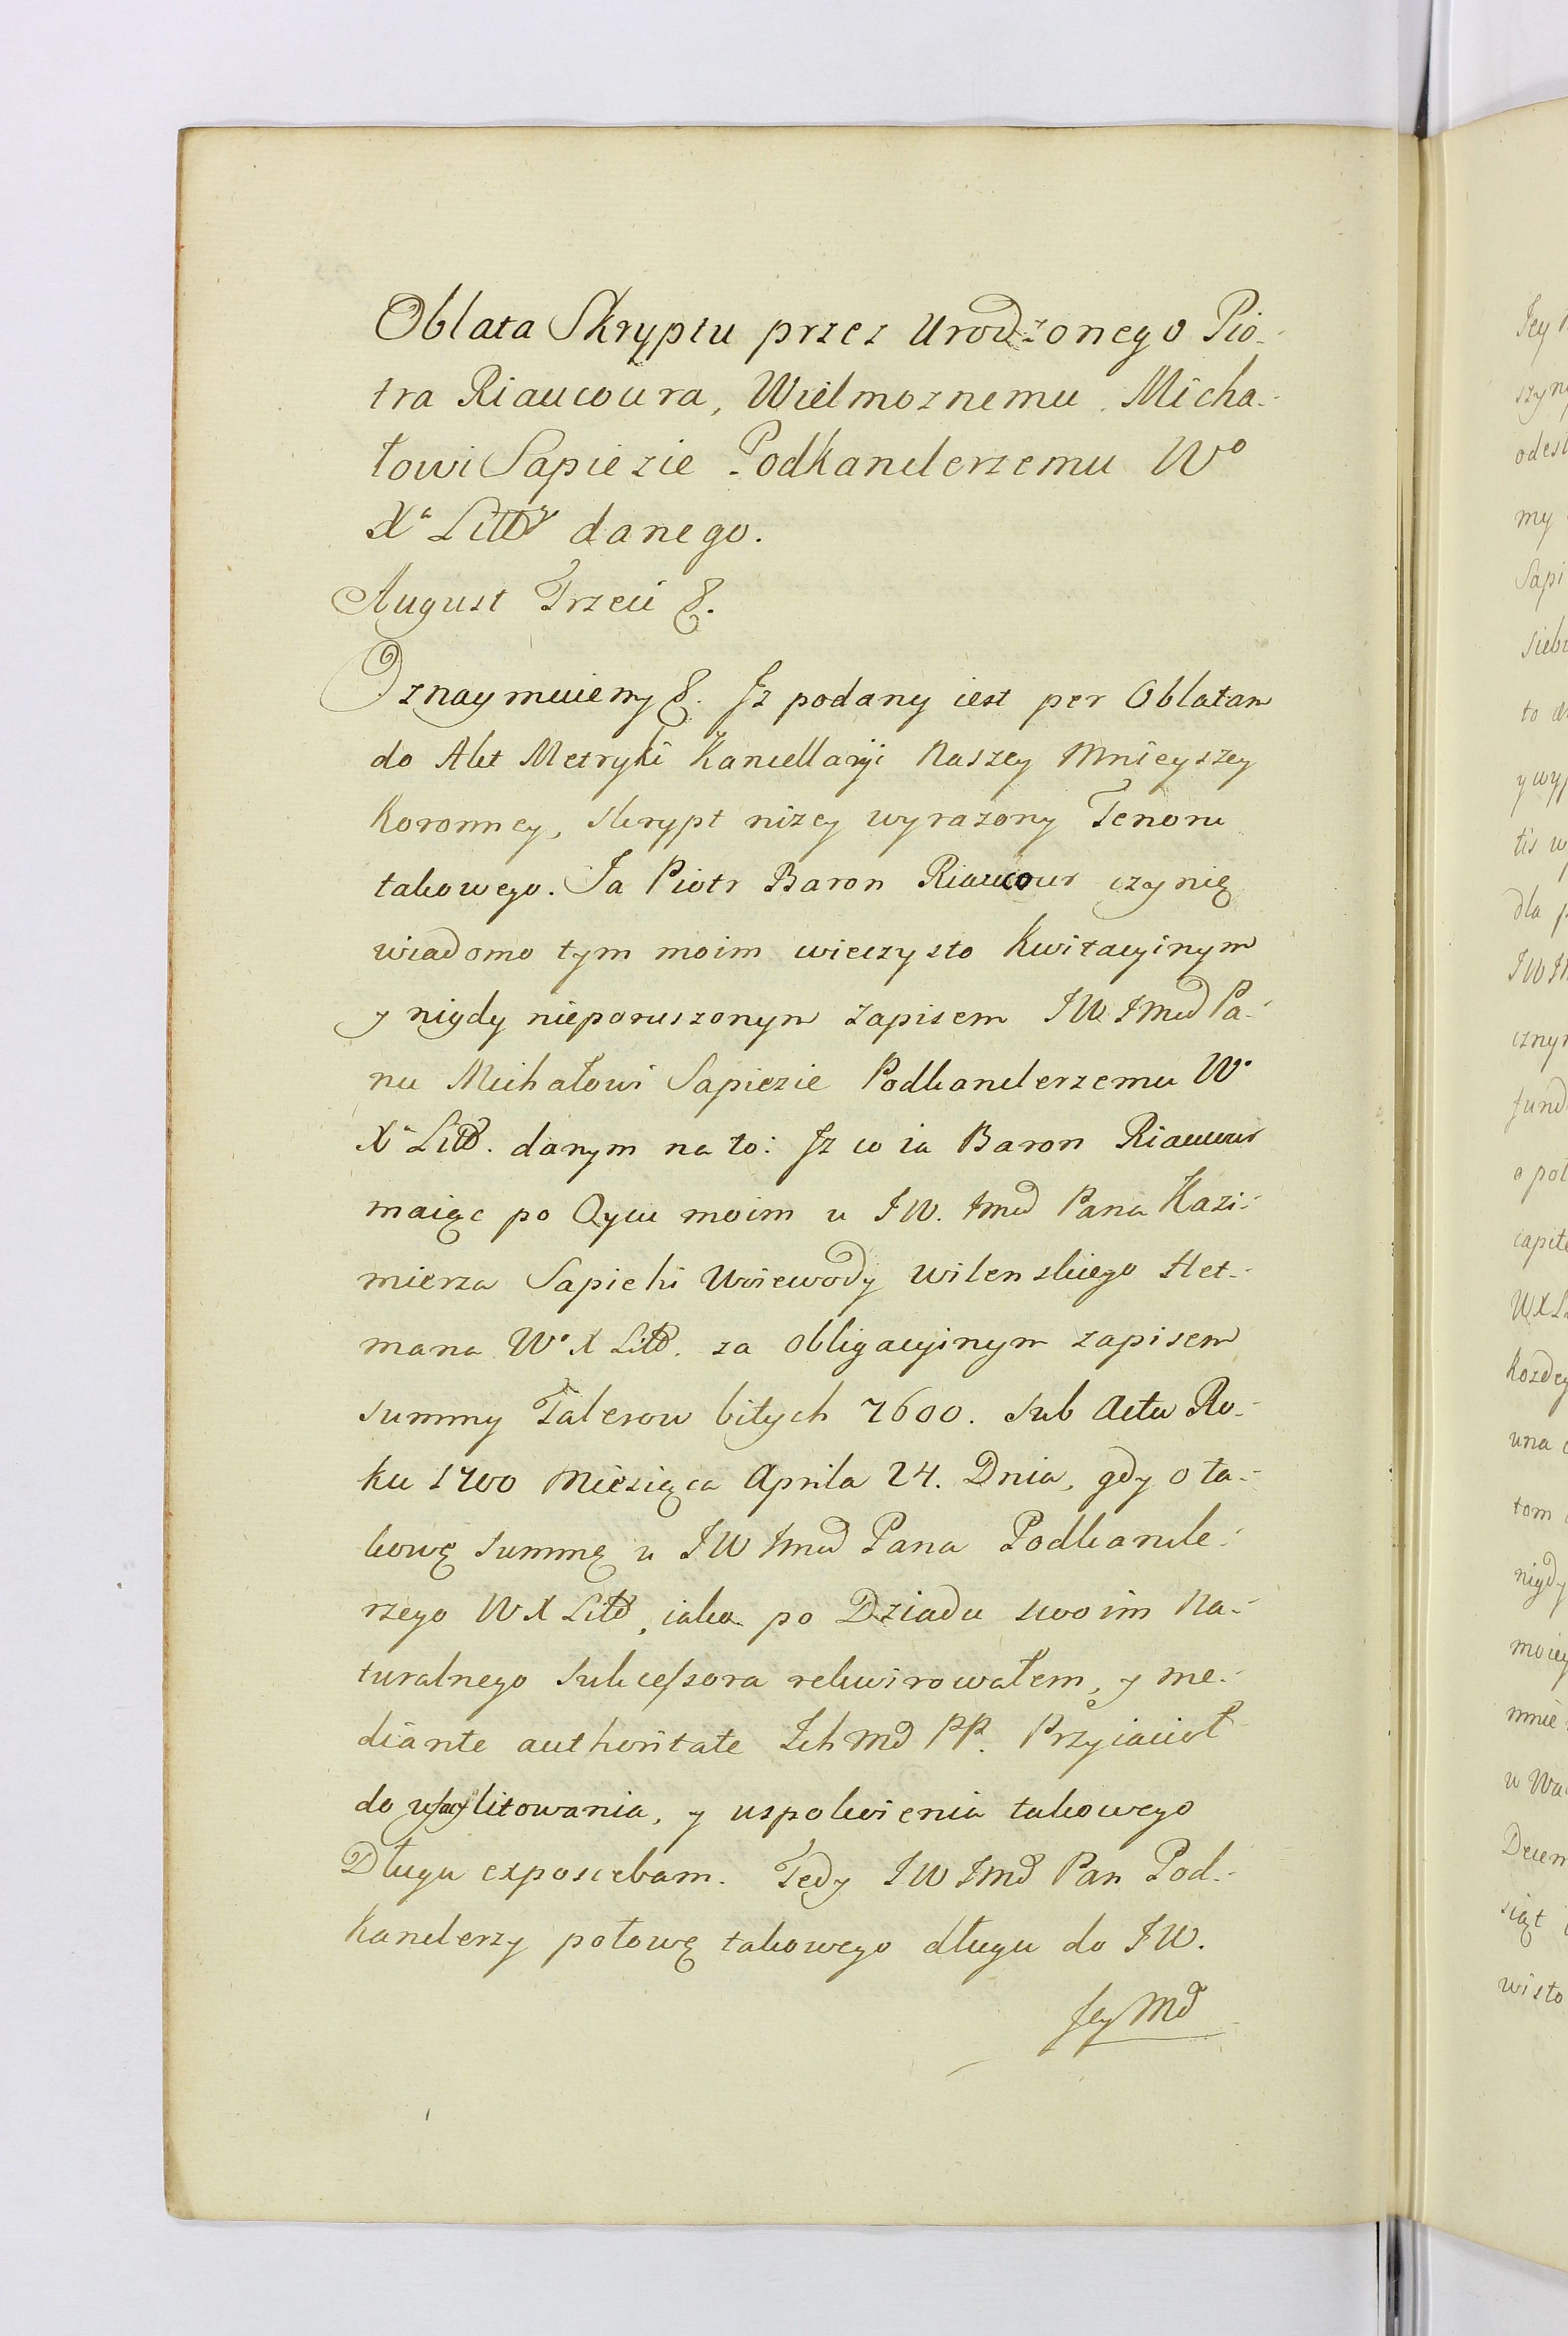 Oblata Skryptu przez Urodzonego Pio-
tra Riaucoura, Wielmoznemu Micha-
łowi Sapiezie Podkanclerzemu Wo
Xa Littgo danego.
August Trzeci &.
Oznaymuiemy &. Jz podany iest per Oblatam
do Akt Metryki Kancellaryi Naszey Mnieyszey
Koronney, skrypt nizey wyrazony Tenoru
takowego. Ja Piotr Baron Riaucour czynię
wiadomo tym moim wieczysto Kwitacyinym
y nigdy nieporuszonym zapisem JW Jmcd Pa-
nu Michałowi Sapiezie Podkanclerzemu Wo
Xa Littd. danym na to: Jz co ia Baron Riaucour
maiąc po Oycu moim u JW. Jmcd Pana Kazi-
mierza Sapiehi Woiewody wilenskiego Het-
mana Wo X Littd. za obligacyinym zapisem
summy Talerow bitych 7600. sub Actu Ro-
ku 1700 Miesiąca Aprila 24. Dnia, gdy o ta-
kową summę u JW Jmcd Pana Podkancle-
rzego W X Littd, iako po Dziadu swoim Na-
turalnego Sukcessora rekwirowałem, y me-
diante authoritate Ichmd PP. Przyiacioł
do ufacylitowania, y uspokoienia takowego
Długu exposcebam. Tedy JW Jmd Pan Pod-
kanclerzy połowę takowego długu do JW.
Jey Md